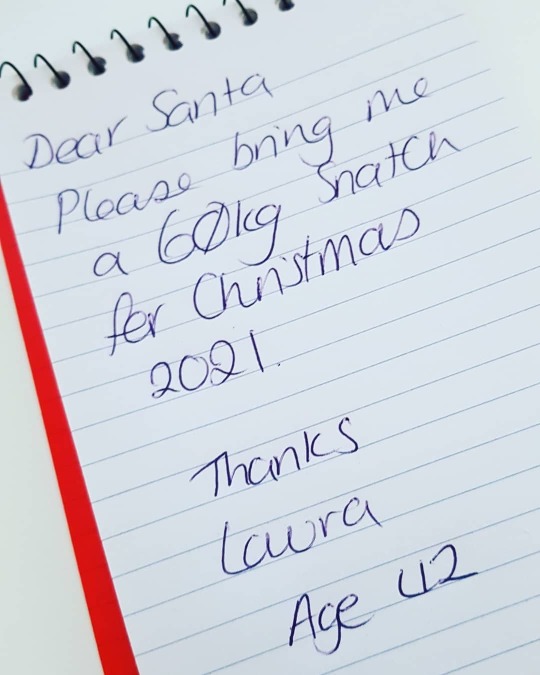 Dear Santa
Please bring me
a 60kg Snatch
for Christmas
2021.
Thanks
Laura
Age 42